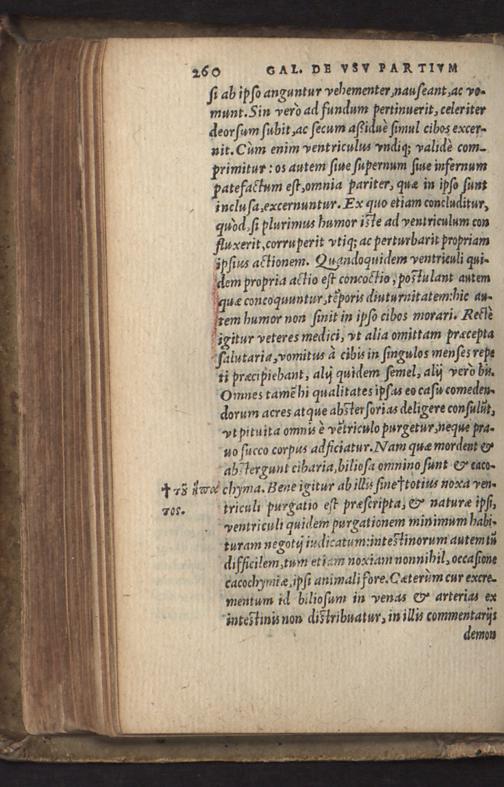 260 GAL. DE VSV PARTIVM
si ab ipso anguntur vehementer, nauseant, ac vo-
munt. Sin verò ad fundum pertinuerit, celeriter
deorsum subit, ac secum aßiduè simul cibos excer-
nit. Cùm enim ventriculus vndiq; validè com-
primitur: os autem siue supernum siue infernum
patefactum est, omnia pariter, quæ in ipso sunt
inclusa, excernuntur. Ex quo etiam concluditur,
quòd, si plurimus humor iste ad ventriculum con
fluxerit, corruperit vtiq; ac perturbarit propriam
ipsius actionem. Quandoquidem ventriculi qui-
dem propria actio est concoctio, postulant autem
quæ concoquuntur, tẽporis diuturnitatem: hic au-
tem humor non sinit in ipso cibos morari. Rectè
igitur veteres medici, vt alia omittam præcepta
salutaria, vomitus à cibis in singulos menses repe
ti præcipiebant, alij quidem semel, alij verò bis.
Omnes tamẽ hi qualitates ipsas eo casu comeden-
dorum acres atque abstersorias deligere consulũt,
vt pituita omnis è vẽtriculo purgetur, neque pra-
uo succo corpus adficiatur. Nam quæ mordent &
abstergunt cibaria, biliosa omnino sunt & caco-
chyma. Bene igitur ab illis sine †totius noxa ven-
triculi purgatio est præscripta, & naturæ ipsi,
ventriculi quidem purgationem minimum habi-
turam negotij indicatum: intestinorum autem tũ
difficilem, tum etiam noxiam nonnihil, occasione
cacochymiæ, ipsi animali fore. Cæterùm cur excre-
mentum id biliosum in venas & arterias ex
intestinis non distribuatur, in illis commentarijs
demon
† τȣ͂
τος.